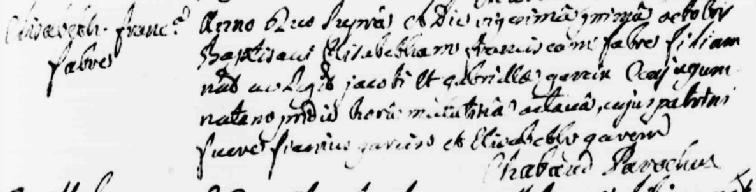 Elisabeth franc.ª
fabres
Anno Quo supra et Die vigesima prima octobris
baptisavi Elisabetham franciscam fabre filiam
nat ac legit jacobi et gabriellæ garcin Conjugum
natam pridie hora matutina octava, cujus patrini
fuere garcins et Elisabeth
Chabaud Parochus